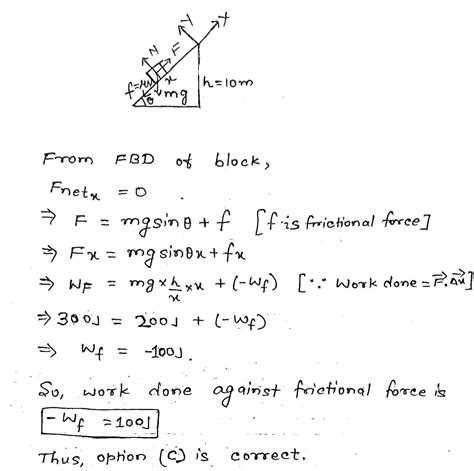 Y
x
N
F
f=μN
x
h=10m
θ
mg
From FBD of block,
Fnetx = 0
⇒ F = mgsinθ + f [f is frictional force]
⇒ Fx = mgsinθx + fx
⇒ WF = mg × h/x × x + (-Wf) [∵ Work done = F⃗.Δx⃗]
⇒ 300J = 200J + (-Wf)
⇒ Wf = -100J.
So, work done against frictional force is
-Wf = 100J
Thus, option (C) is correct.